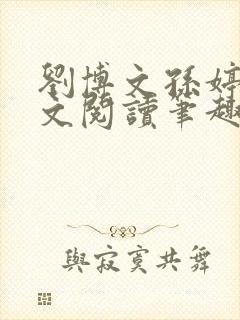 劉博文孫婷
文閱讀筆趣
與寂寞共舞